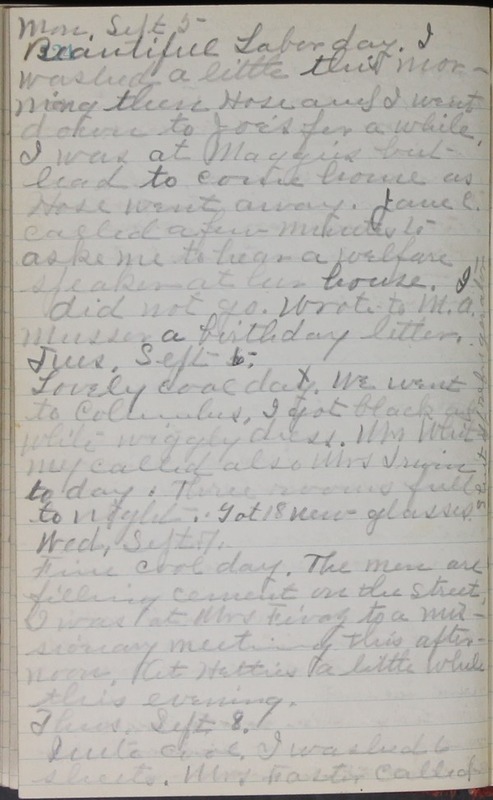 Mon, Sept 5
Beautiful Labor day. I
washed a little this mor-
ning then Hose and I went
down to Joe's for a while,
I was at Maggies but
had to come home as
Hose went away. Jane C.
called a few minutes to
aske me to hear a welfare
speaker at her house. I
did not go. Wrote to M. A.
Musser a birthday letter.
Tues, Sept 6.
Lovely cool day. We went
to Columbus, I got black and
white wiggly dress. Mrs
my called also Mrs Irwin
to day. Three rooms full
to night. Got 18 new glasses.
Wed, Sept 7.
Fine cool day. The men are
filling cement on the street,
I was at Mrs to a mis-
sionary meeting this after-
noon, At Hetties a little while
this evening.
Thurs, Sept, 8.
Quite cool, I washed 6
sheets. Mrs Foster called